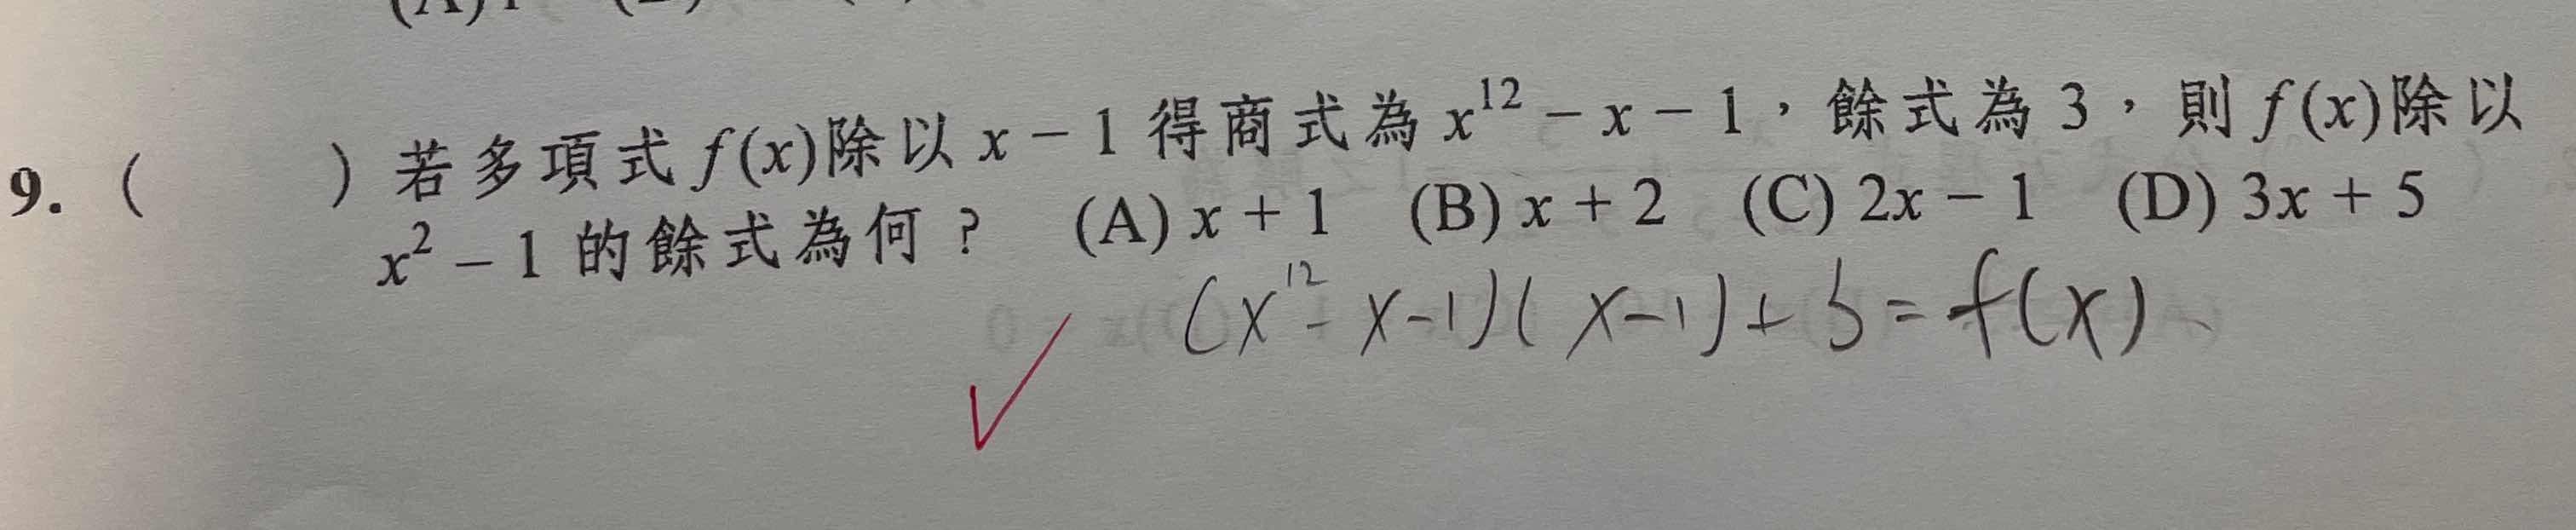 9. (　　) 若多項式 f(x)除以 x − 1 得商式為 x¹² − x − 1，餘式為 3，則 f(x)除以
x² − 1 的餘式為何？ (A) x + 1 (B) x + 2 (C) 2x − 1 (D) 3x + 5
(x¹² - x - 1)(x - 1) + 3 = f(x)